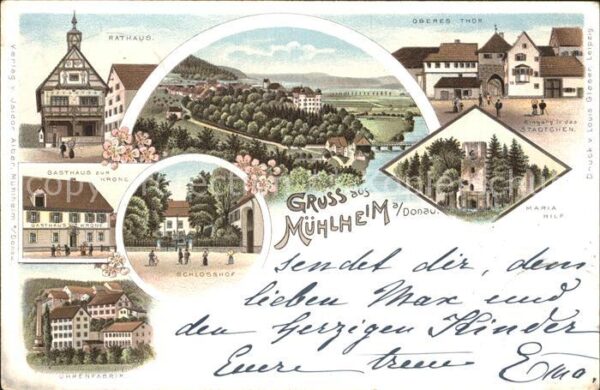 RATHAUS.
OBERES THOR
Eingang in das
STÄDTCHEN.
GASTHAUS ZUR
KRONE
GASTHAUS Z. KRONE
SCHLOSSHOF
MARIA
HILF
UHRENFABRIK
GRUSS aus
MÜHLHEIM a/Donau.
sendet dir, dem
lieben Max und
den herzigen Kinder
Euere treue
Verlag v. Jacob Abel, Mühlheim a/Donau.
Druck v. Louis Glaser, Leipzig